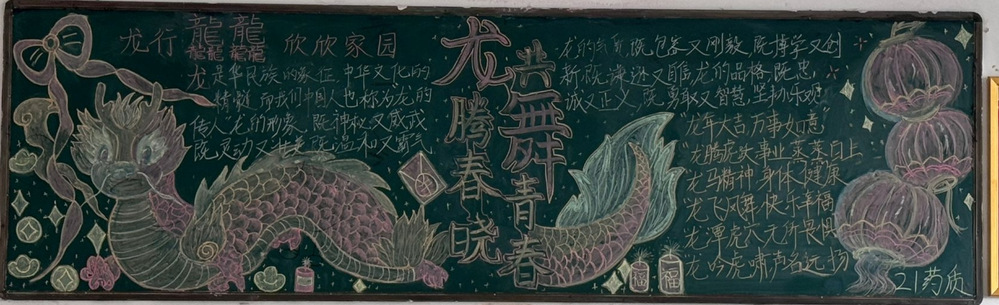 龙行龘龘 欣欣家园
龙是华民族的象征中华文化的
精髓 而我们中国人也称为龙的
传人龙的形象 既神秘又威武
既灵动又 既温和又霸气
龙腾春晓
共舞青春
龙的 既包容又刚毅 既博学又创
新既谦逊又 龙的品格既忠
诚又正义,既勇敢又智慧,坚韧乐观
龙年大吉 万事如意
龙腾虎跃事业蒸蒸日上
龙马精神 身体健康
龙飞凤舞快乐幸福
龙潭虎穴无所畏惧
龙吟虎啸声名远扬
福
福
21药质